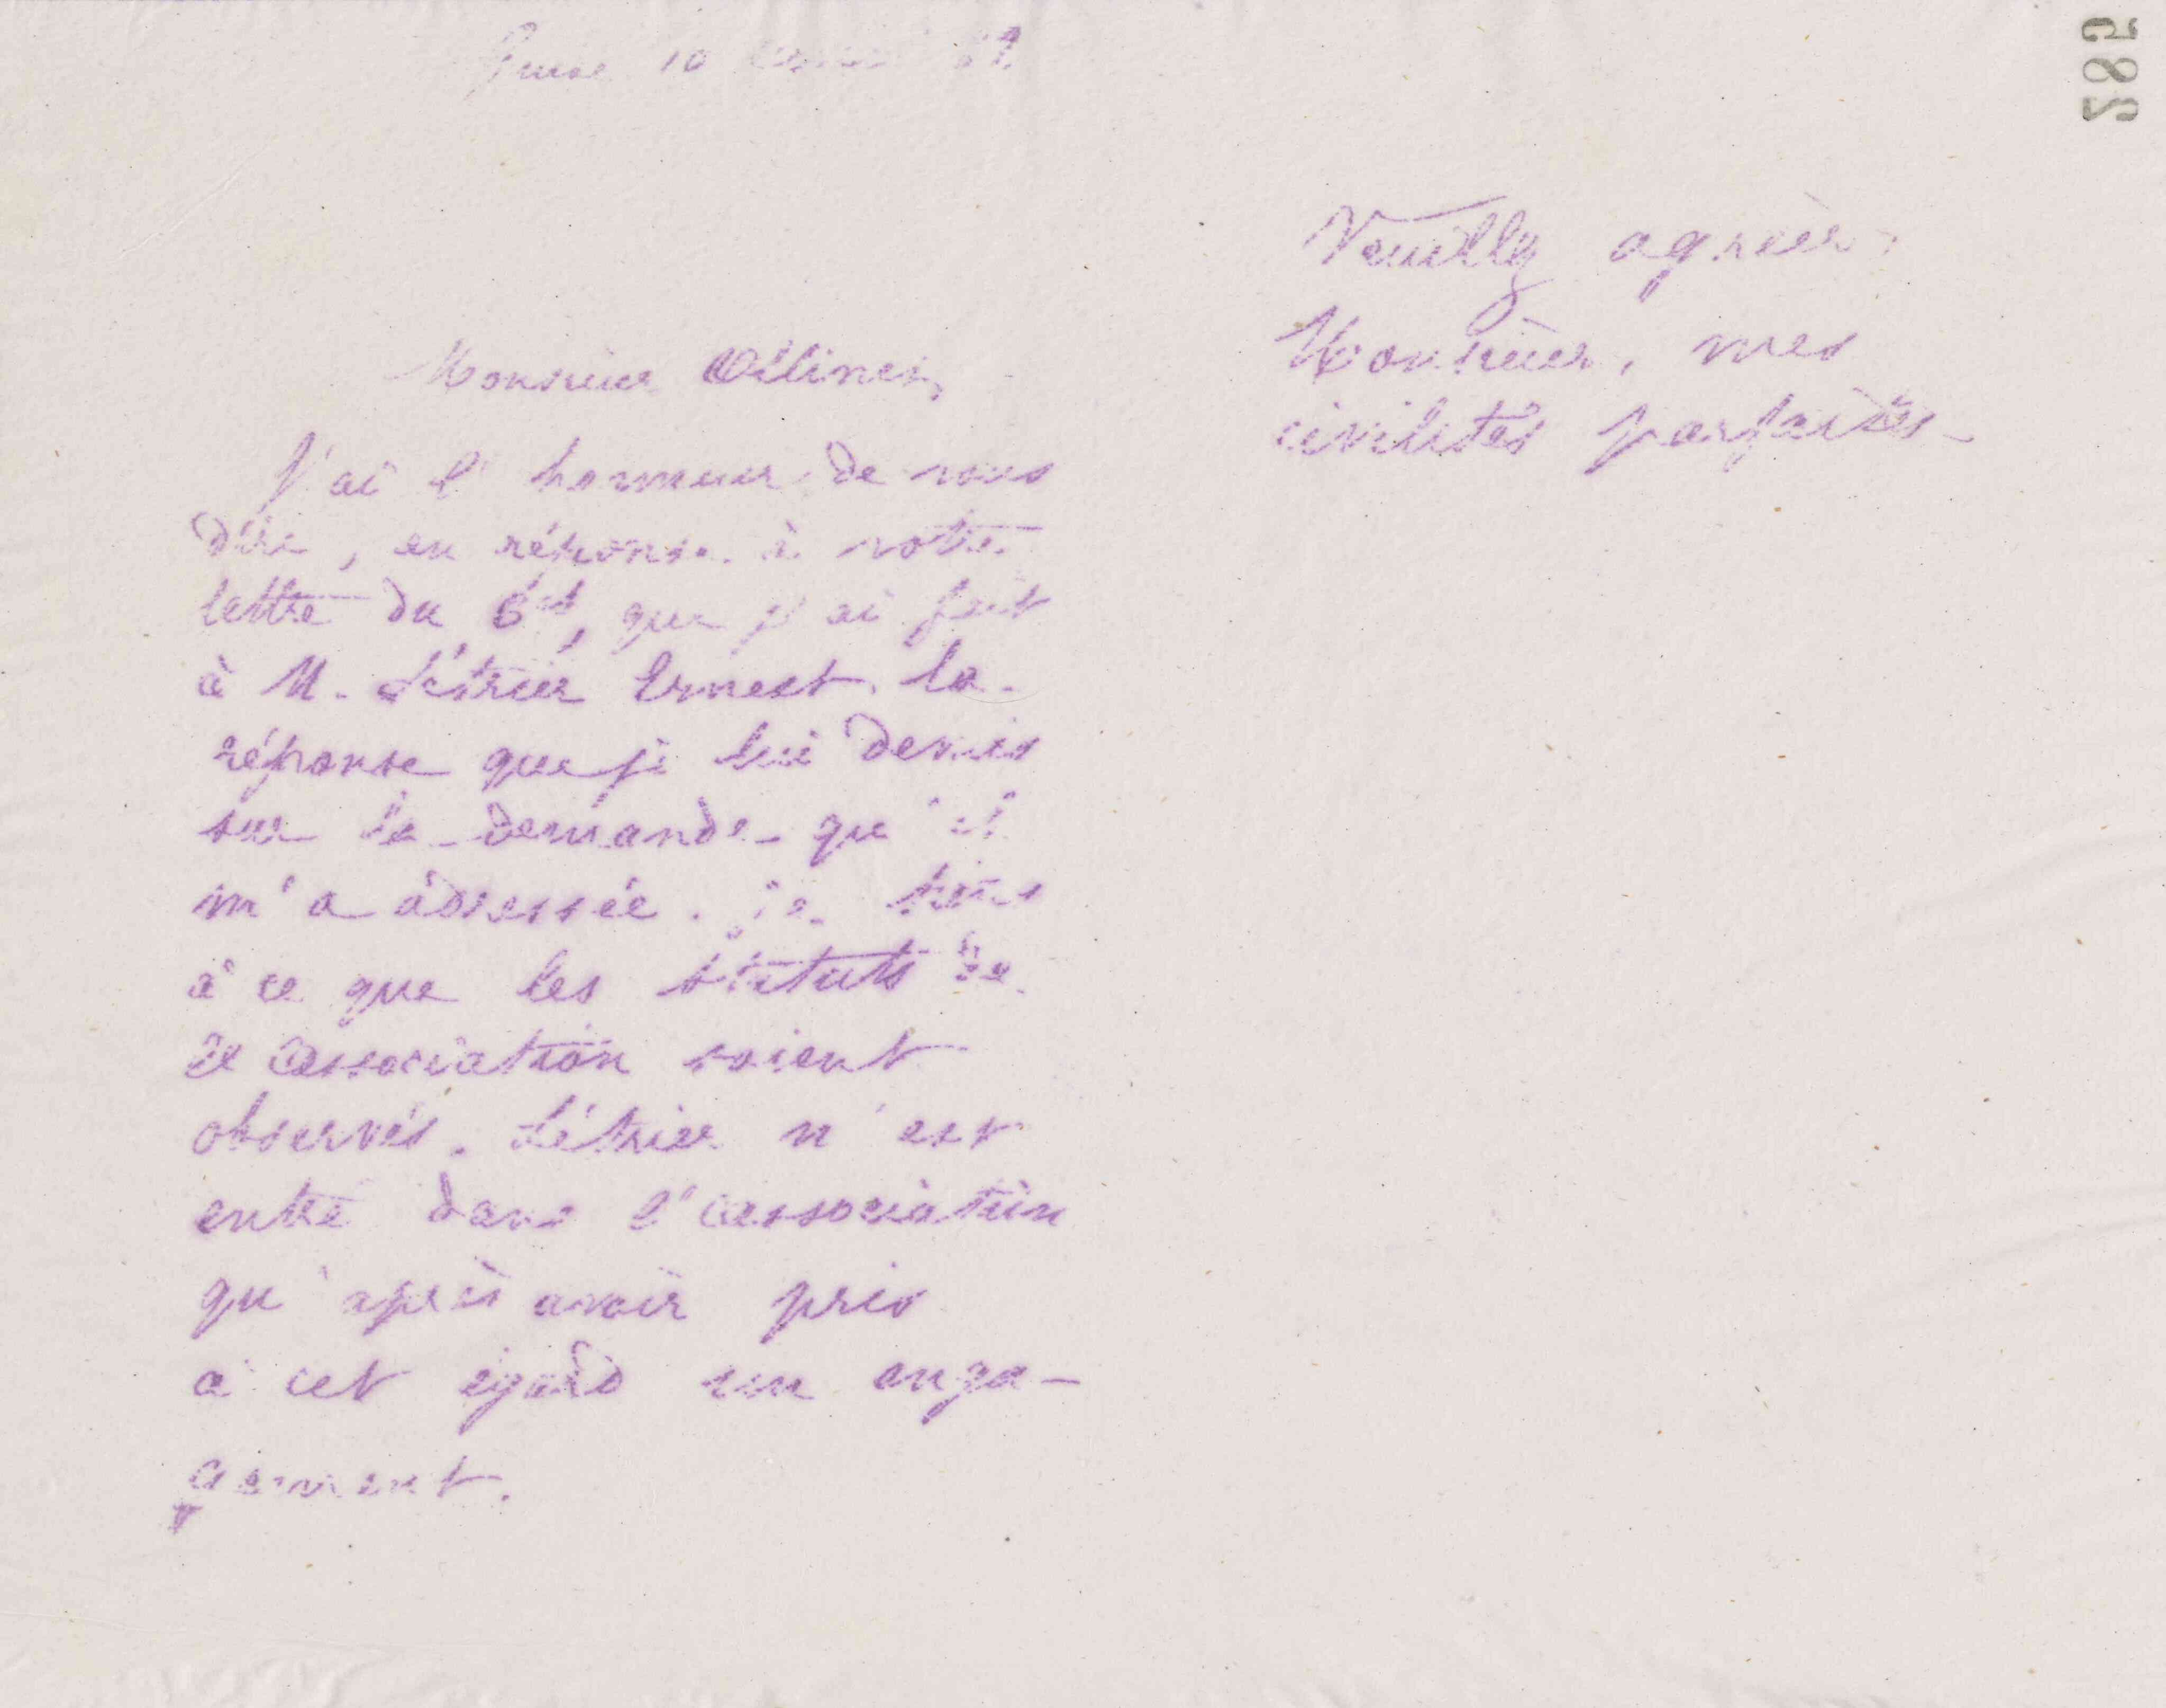 Guise 10
Monsieur
J'ai l'honneur de vous
dire, en réponse à votre
lettre du 6 ct, que j'ai fait
à M. Létrier Ernest la
réponse que je lui devais
sur la demande qu'il
m'a adressée. je tiens
à ce que les statuts de
l'association soient
observés. Létrier n'est
entré dans l'association
qu'après avoir pris
à cet égard un enga-
gement.
Veuillez agréer,
Monsieur, mes
civilités parfaites
285